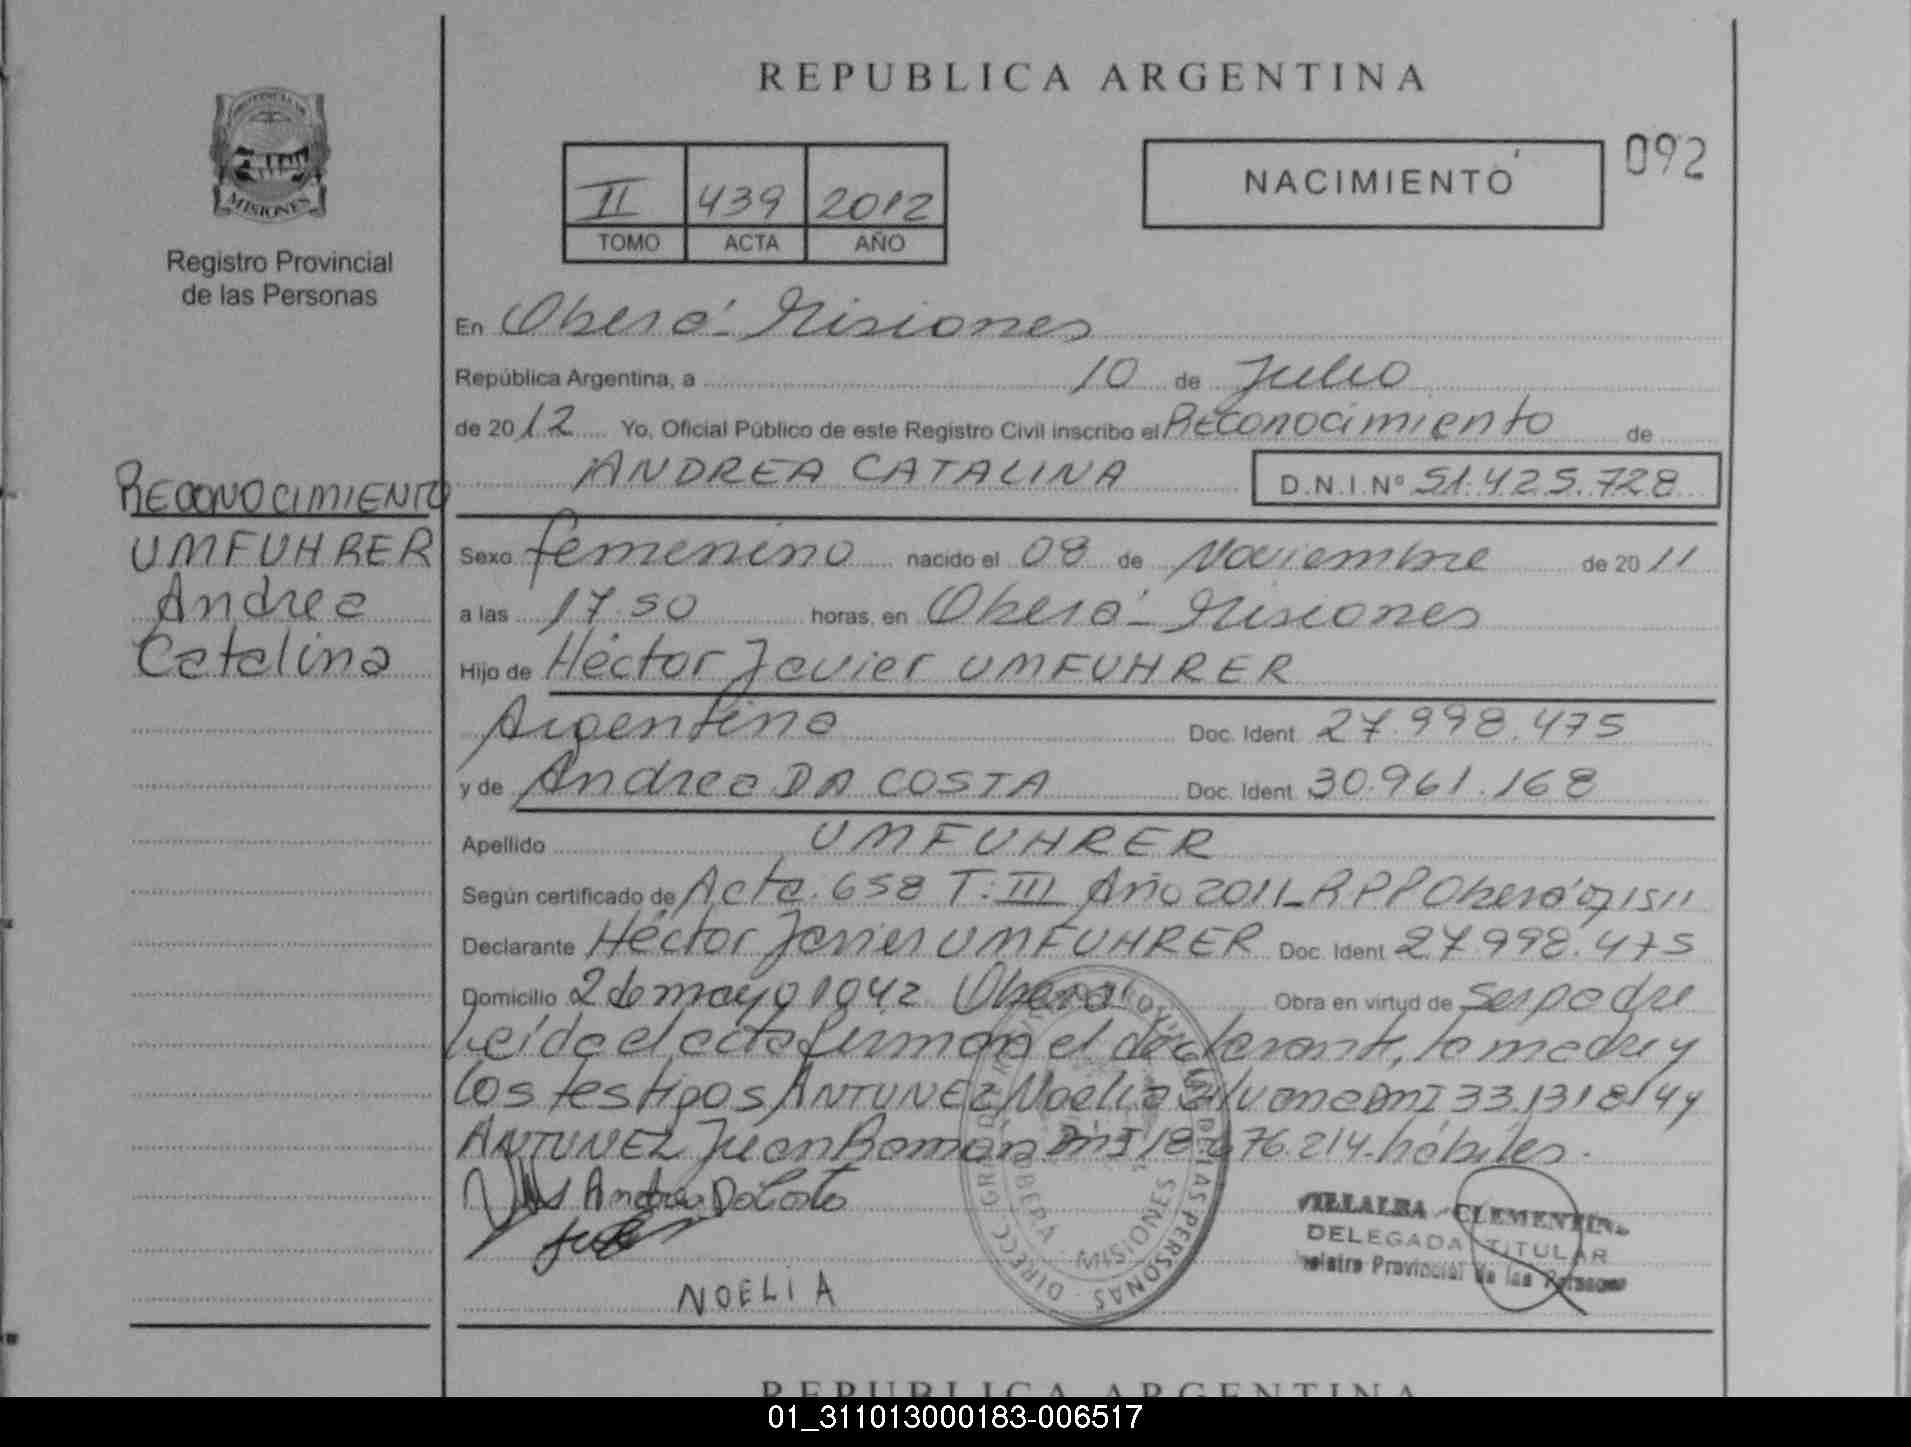 REPUBLICA ARGENTINA
PROVINCIA DE
MISIONES
Registro Provincial
de las Personas
II 439 2012
TOMO ACTA AÑO
NACIMIENTO
092
En Oberá - Misiones
República Argentina, a 10 de Julio
de 2012 Yo, Oficial Público de este Registro Civil inscribo el Reconocimiento de
ANDREA CATALINA D.N.I.Nº 51.425.728
RECONOCIMIENTO
UMFUHRER
Andrea
Catalina
Sexo femenino nacido el 08 de Noviembre de 2011
a las 17.50 horas, en Oberá - Misiones
Hijo de Héctor Javier UMFUHRER
Argentino Doc. Ident. 27.998.475
y de Andrea DA COSTA Doc. Ident. 30.961.168
Apellido UMFUHRER
Según certificado de Acta. 658 T: III Año 2011_ RPP Oberá 07/511
Declarante Héctor Javier UMFUHRER Doc. Ident. 27.998.475
Domicilio 2 de mayo 1042 Oberá Obra en virtud de Ser padre
Leída el acta firman el declarante, la madre y
los testigos ANTUNEZ Noelia Silvana DNI 33.131814 y
ANTUNEZ Juan Roman DNI 18.676.214 hábiles.
Andrea Da Costa
NOELIA
VILLALBA CLEMENTINA
DELEGADA TITULAR
Registro Provincial de las Personas
DE LAS PERSONAS - DIRECC. GRAL
OBERÁ - MISIONES
REPUBLICA ARGENTINA
01_311013000183-006517